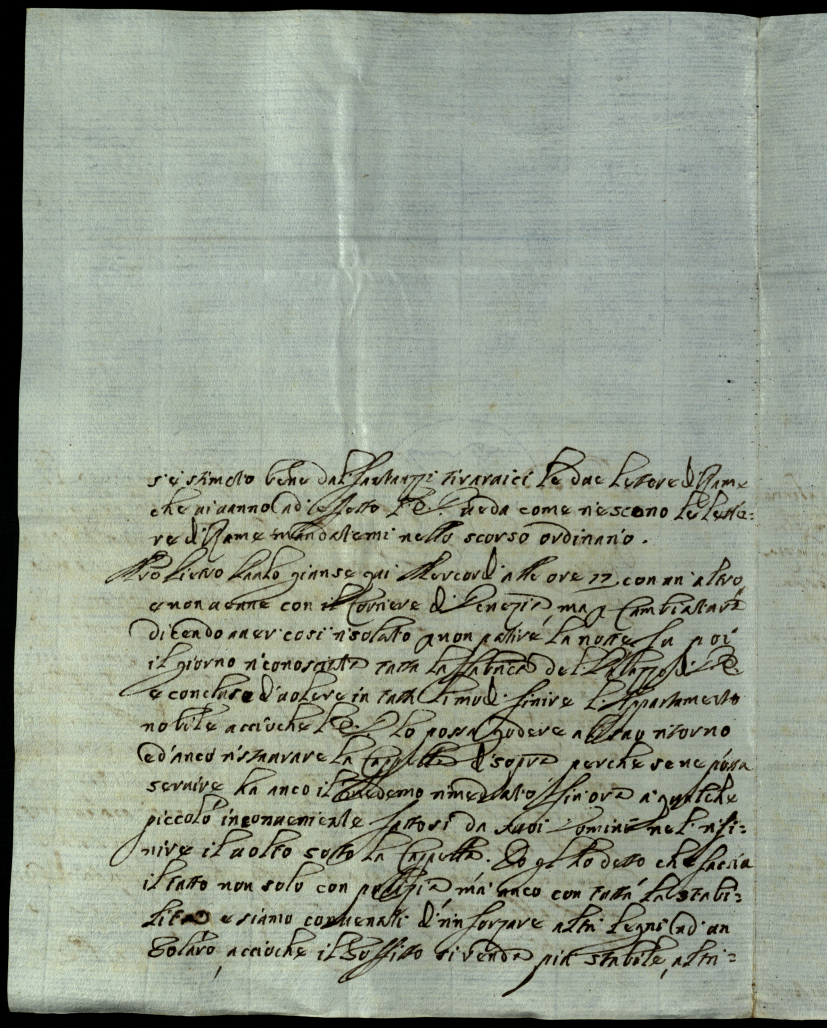 si è stimato bene dal Santanzi tirarci le due lettere di Rame
che vi vanno ad effetto V.E. veda come riescono le lette=
re di Rame mandatemi nello scorso ordinario.
Pietro giunse qui Mercordì alle ore 22 con un altro
e non venne con il Corriere di Venezia, ma Cambiatura
dicendo aver così risoluto p non patire la notte. Fu poi
il giorno riconosciuta tutta la fabrica del Palazzo di V.E.
e concluso d'volere in tutti li modi finire l'Appartamento
nobile accioche V.E. lo possa godere al suo ritorno
ed'anco ristaurare la Cappella di sopra perche se ne possa
servire ha anco il medemo rimediato sin'ora a qualche
piccolo inconveniente fattosi da suoi Uomini nel rifi=
nire il volto sotto la Cappella. Io gli ho detto che faccia
il tutto non solo con pulizia mà anco con tutta la stabi=
lità e siamo convenuti d'rinforzare altri legni ad un
Solaro, accioche il Soffitto si renda più stabile, altri=